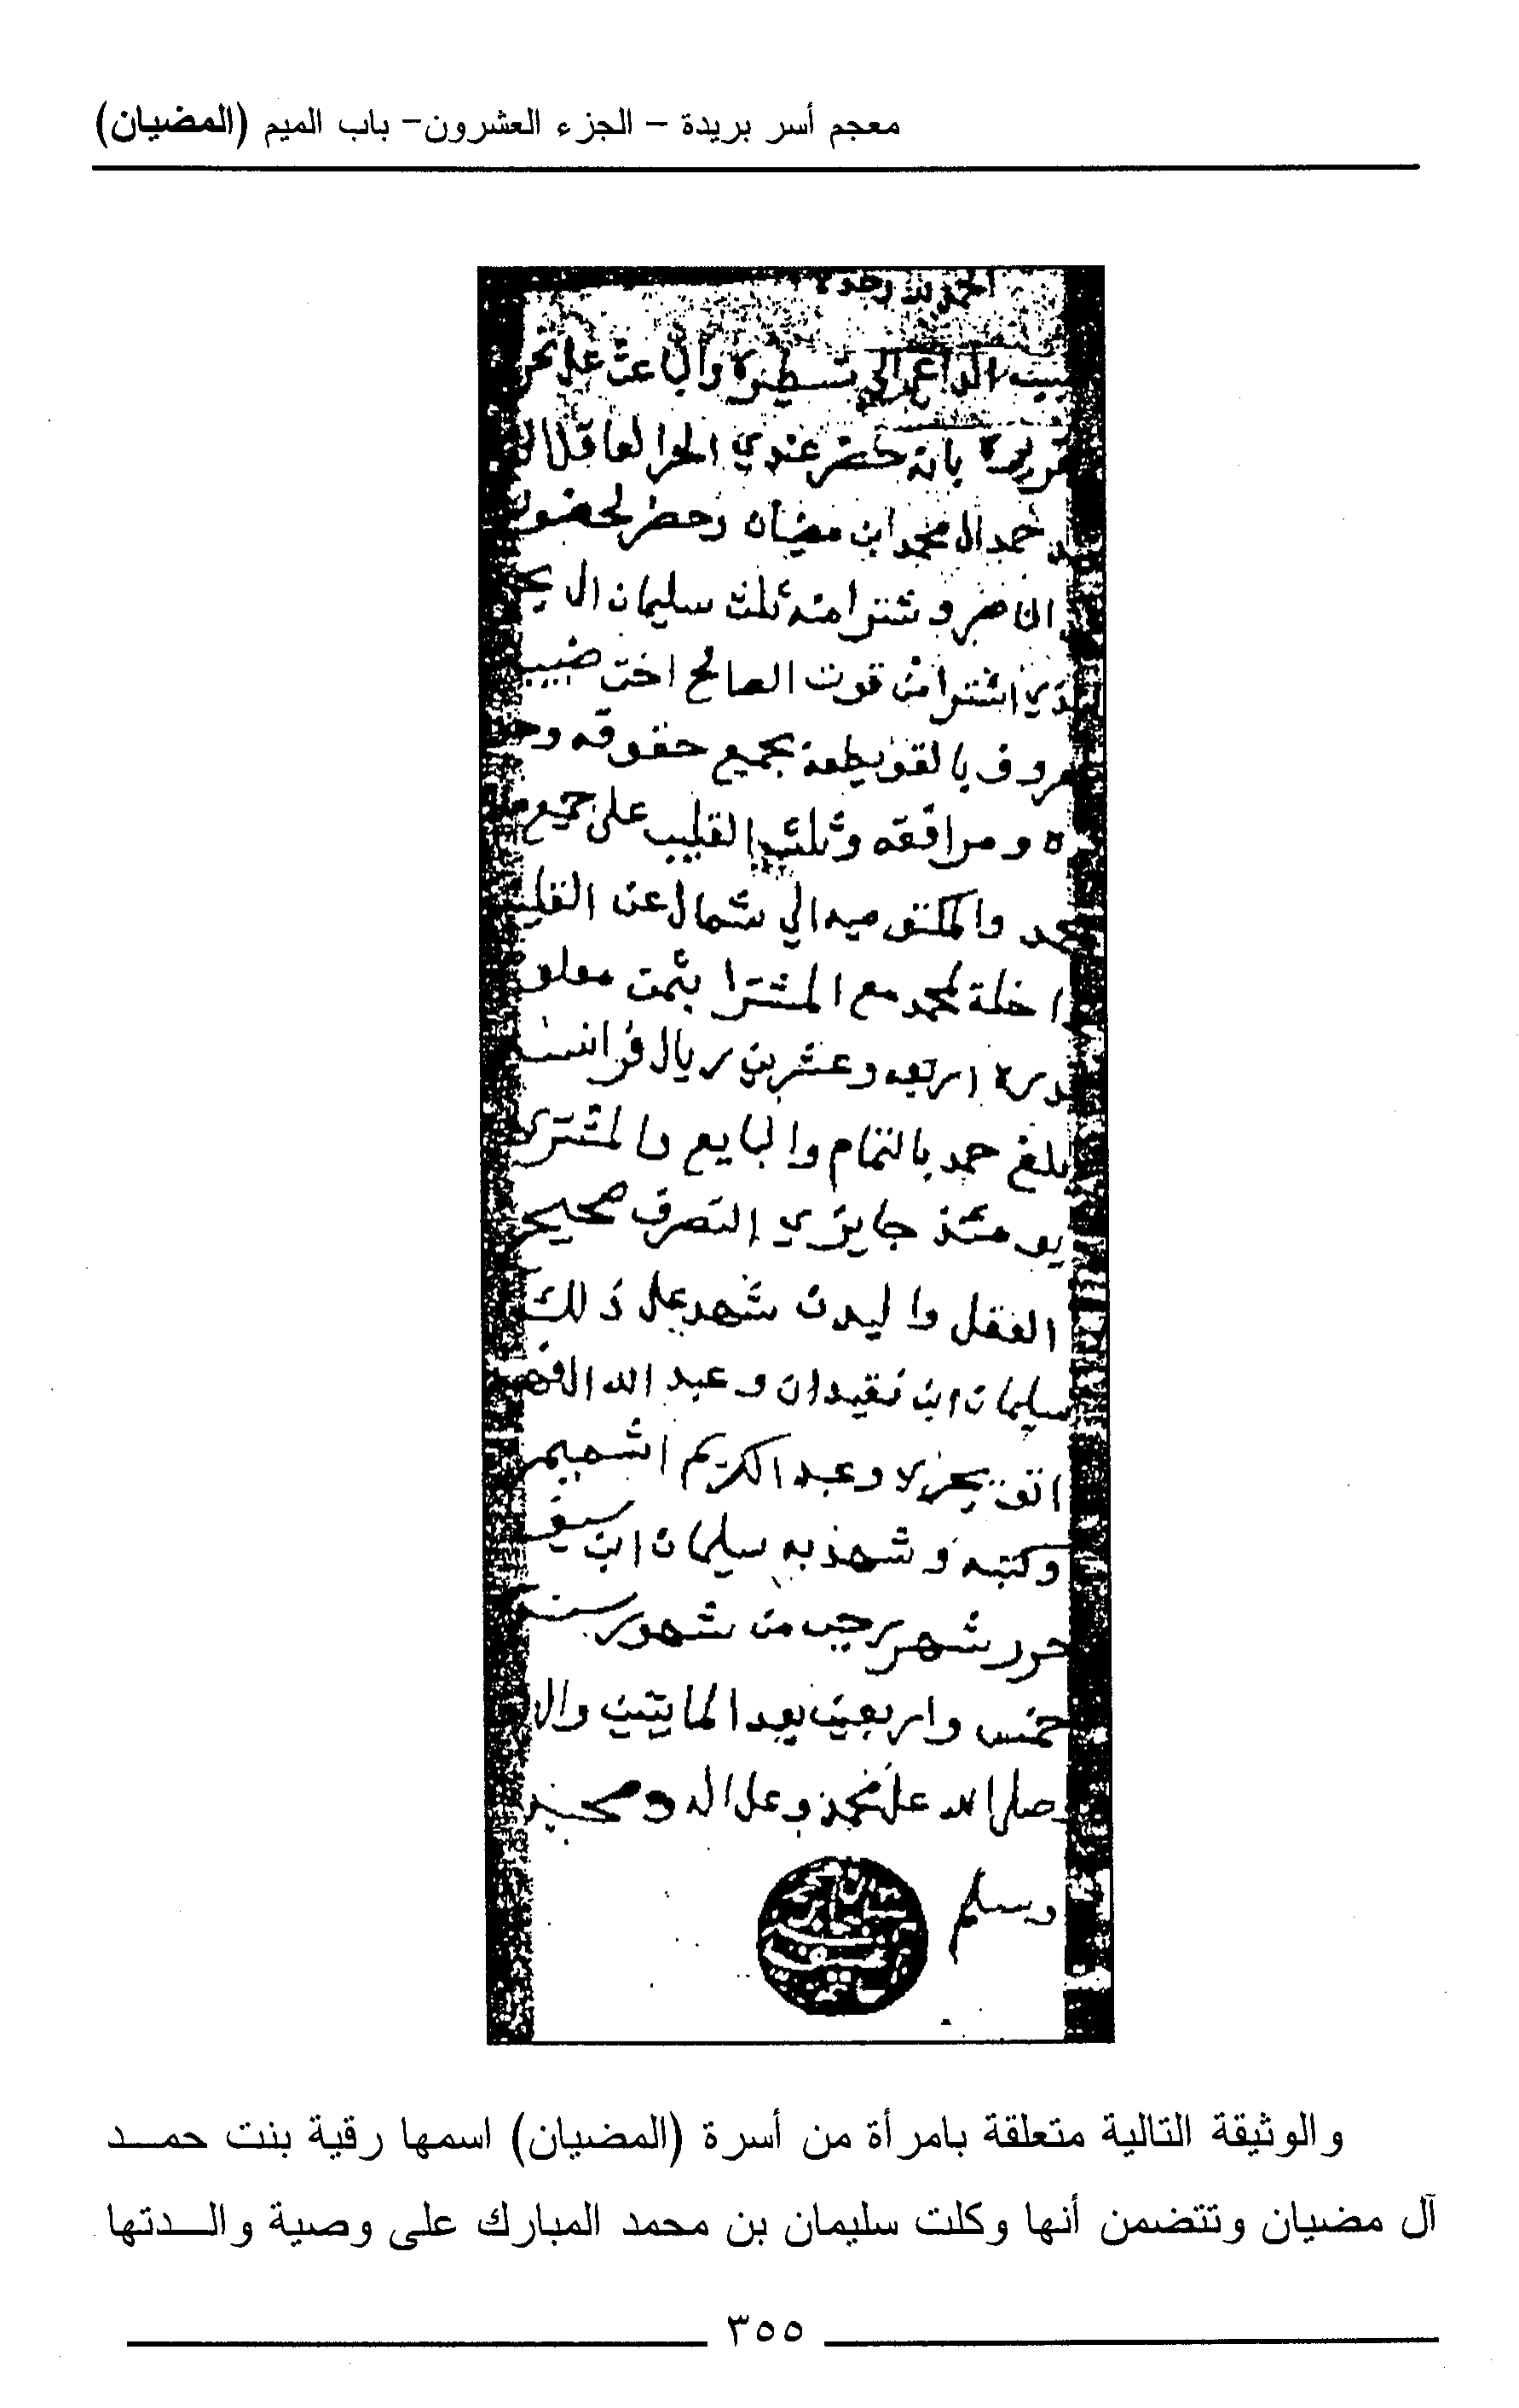 معجم أسر بريدة – الجزء العشرون– باب الميم (المضيان)
الحمد لله وحده
الداعي الي تسطيره والباعث على
تحريره بانه حضر عندي الحر العاقل
حمد ال محمد ابن مضيان وحضر لحضوره
ناصر و شترا منه ثلث سليمان ال
الذي اشترا من قوت الصالح اخت
بالقويطعة بجميع حقوقه
ومرافقه وثلث القليب على جميع
الي شمال عن القليب
داخلة لمحمد مع المشترا بثمن معلوم
اربعه وعشرين ريال فرانسه
بلغن حمد بالتمام والبايع والمشتري
يومئذ جايزي التصرف صحيحين
العقل وا ليدن شهد على ذلك
سليمان ابن نقيدان وعبد الله
وعبد الكريم
وكتبه وشهد به سليمان ابن سيف
حرر شهر رجب من شهور سنة
خمس واربعين بعد المايتين والالف
وصلى الله على محمد وعلى اله وصحبه
وسلم
والوثيقة التالية متعلقة بامرأة من أسرة (المضيان) اسمها رقية بنت حمـــد
آل مضيان وتتضمن أنها وكلت سليمان بن محمد المبارك على وصية والـــدتها
٣٥٥